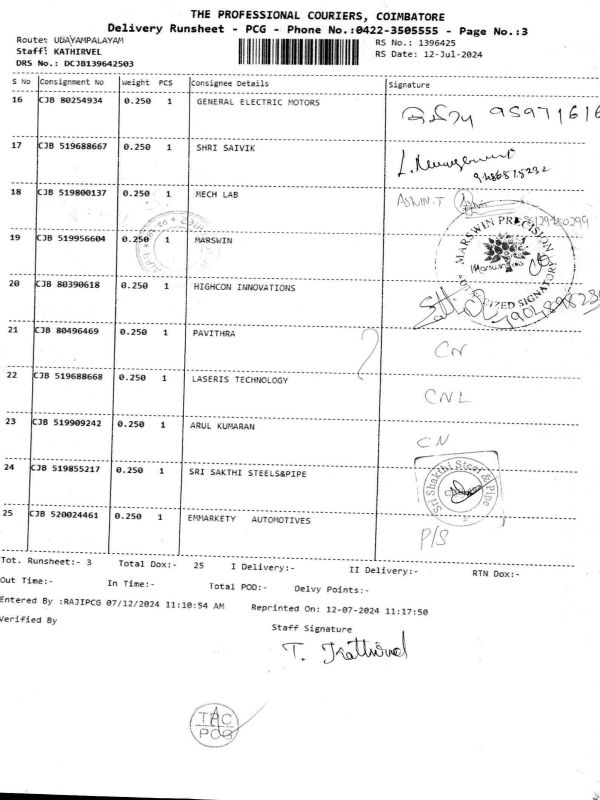 THE PROFESSIONAL COURIERS, COIMBATORE
Delivery Runsheet - PCG - Phone No.:0422-3505555 - Page No.:3
Route: UDAYAMPALAYAM
Staff: KATHIRVEL
DRS No.: DCJB139642503
RS No.: 1396425
RS Date: 12-Jul-2024
S No Consignment No Weight PCS Consignee Details Signature
16 CJB 80254934 0.250 1 GENERAL ELECTRIC MOTORS
17 CJB 519688667 0.250 1 SHRI SAIVIK
18 CJB 519800137 0.250 1 MECH LAB ASWIN.T
19 CJB 519956604 0.250 1 MARSWIN
MARSWIN PRECISION
20 CJB 80390618 0.250 1 HIGHCON INNOVATIONS
21 CJB 80496469 0.250 1 PAVITHRA CN
22 CJB 519688668 0.250 1 LASERIS TECHNOLOGY CNL
23 CJB 519909242 0.250 1 ARUL KUMARAN CN
24 CJB 519855217 0.250 1 SRI SAKTHI STEELS&PIPE
Sri Shakthi Steel & Pipe
25 CJB 520024461 0.250 1 EMMARKETY AUTOMOTIVES P/S
Tot. Runsheet:- 3 Total Dox:- 25 I Delivery:- II Delivery:- RTN Dox:-
Out Time:- In Time:- Total POD:- Delvy Points:-
Entered By :RAJIPCG 07/12/2024 11:10:54 AM Reprinted On: 12-07-2024 11:17:50
Verified By
Staff Signature
TPC
PCG